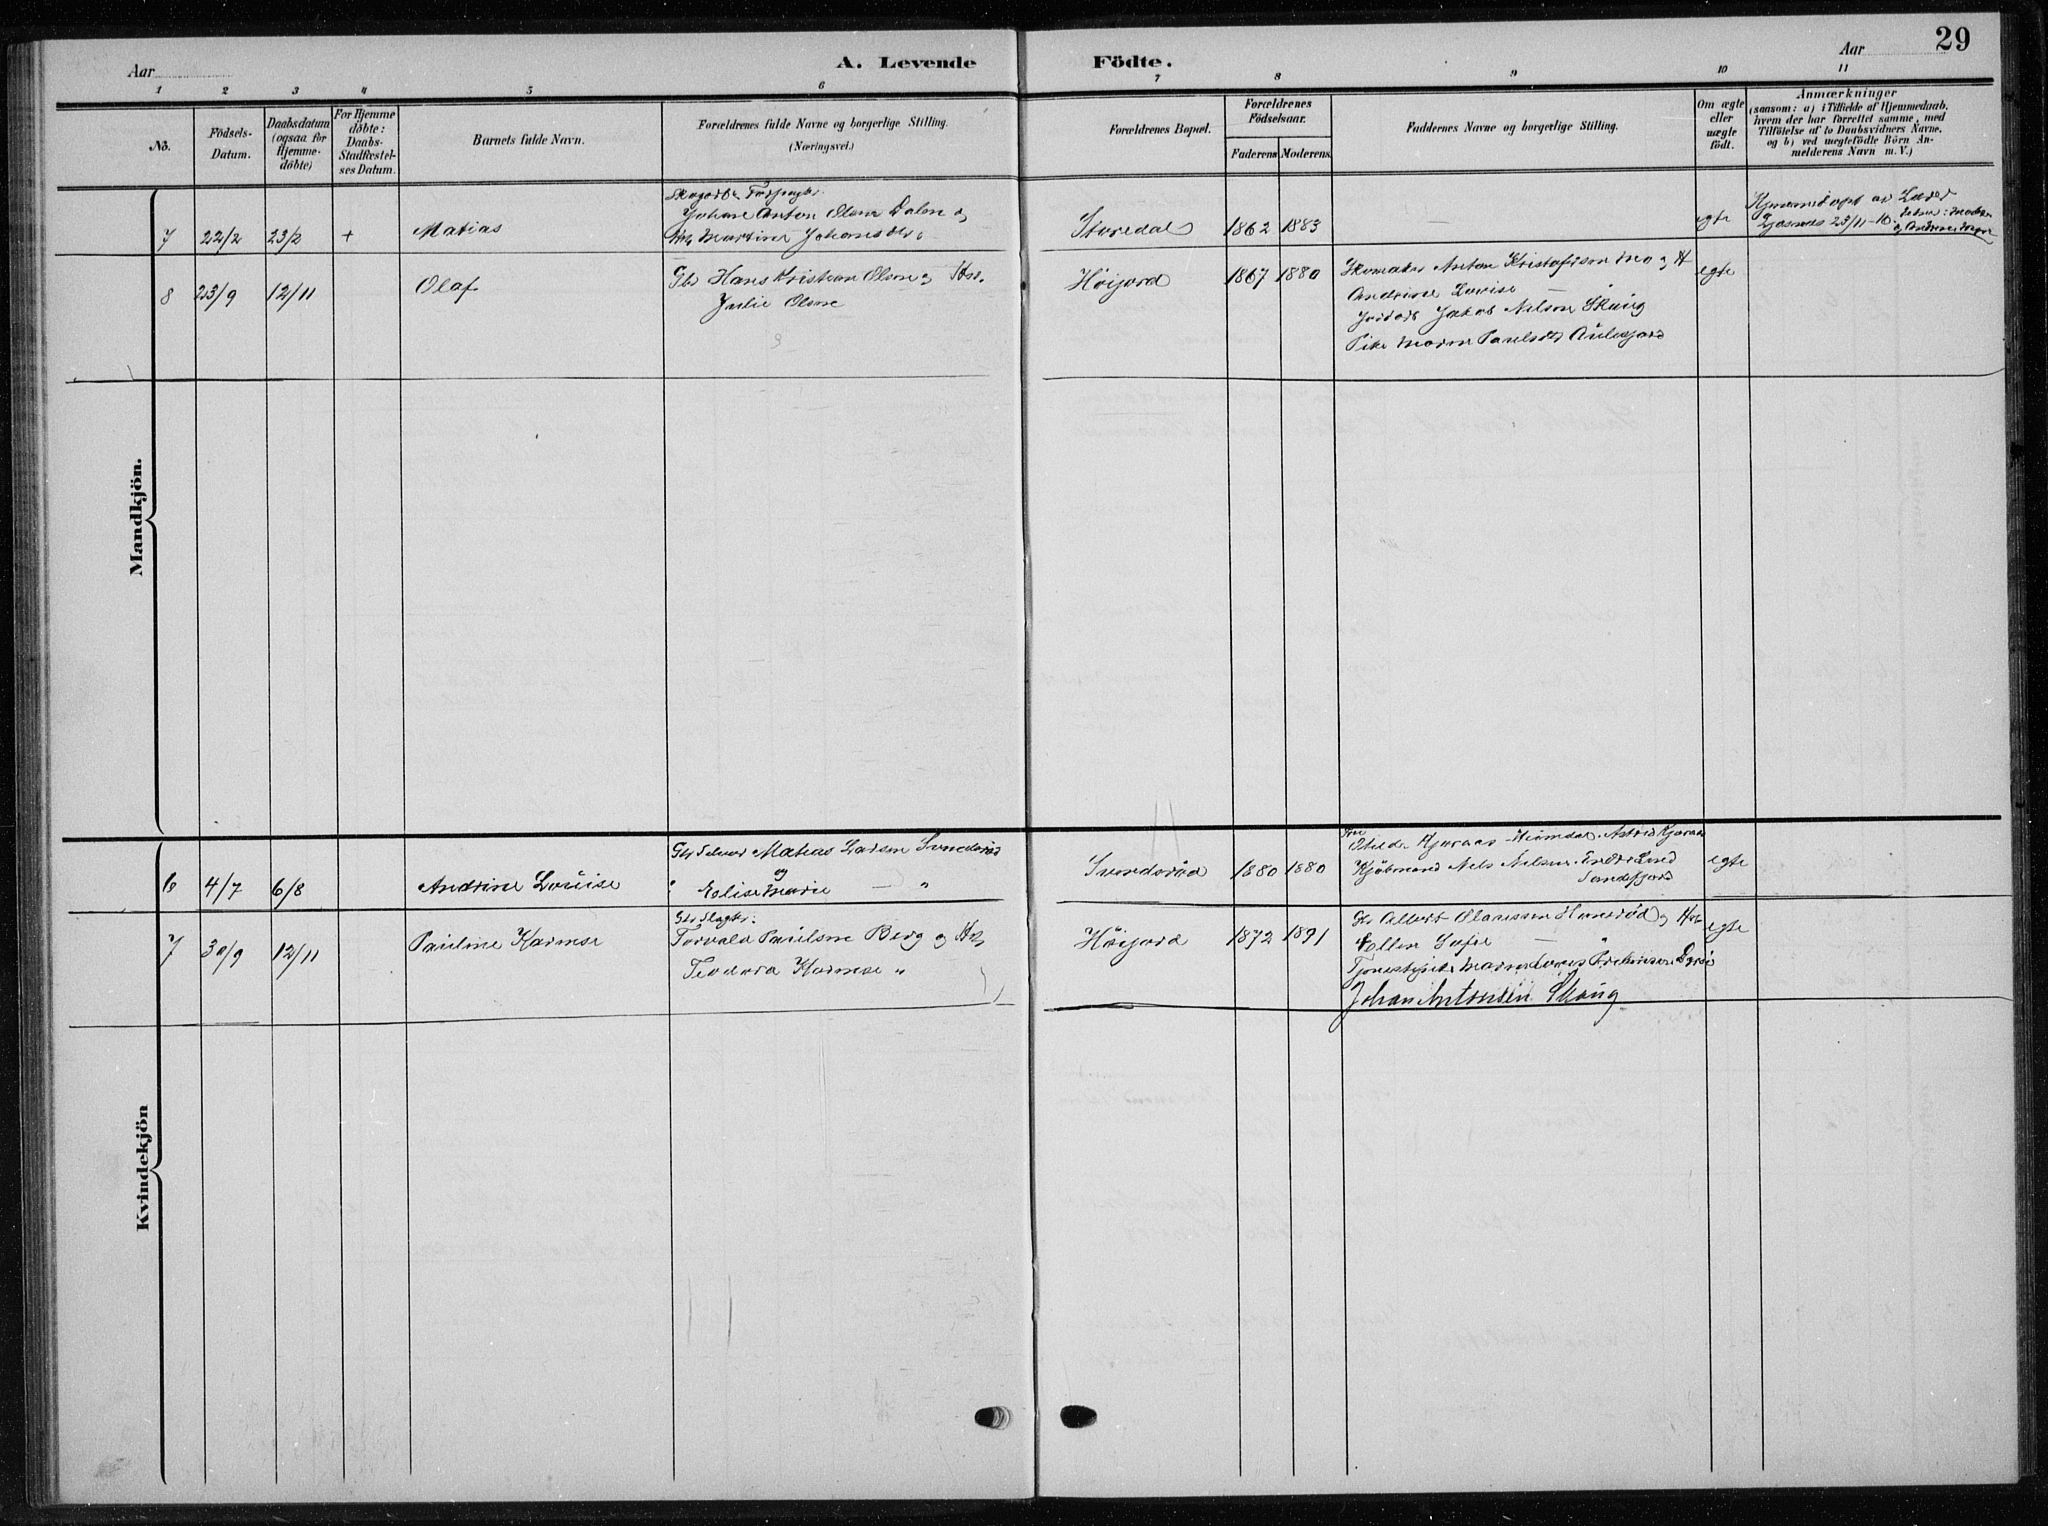 29
Aar
A. Levende
Födte.
Aar
1 2 3 4 5 6 7 8 9 10 11
No.
Födsels-
Datum.
Daabsdatum
(ogsaa for
Hjemme-
döbte)
For Hjemme
döbte:
Daabs-
Stadfæstel-
ses Datum.
Barnets fulde Navn.
Forældrenes fulde Navne og borgerlige Stilling.
(Næringsvei.)
Forældrenes Bopæl.
Forældrenes
Födselsaar.
Faderens Moderens.
Faddernes Navne og borgerlige Stilling.
Om ægte
eller
uægte
födt.
Anmærkninger
(saasom: a) i Tilfælde af Hjemmedaab,
hvem der har forrettet samme, med
Tilföielse af to Daabsvidners Navne.
og b) ved uægtefödte Börn An-
melderens Navn m. V.)
Mandkjön.
7 22/2 23/2 + Matias
Johan Anton Olsen Dalen og
Martine Johansdtr.
Storedal 1862 1883 — egte
23/11-10
8 23/9 12/11 Olaf
Gbr Hans Kristian Olsen og Hst.
Julie Olsen
Höijord 1867 1880
Skomaker Anton Kristofersen Mo og H
Andrine Lovise —
Jordarb Jakob Nilsen Skaug
Pike Maren Paulsdtr
egte
Kvindekjön
6 4/7 6/8 Andrine Louise
Matias Larsen Svendsröd
og
" Elise Marie — "
Svendsröd 1880 1880
Kjöbmand Nels Nelsen
Sandefjord
egte
7 30/9 12/11 Pauline Karense
Torvald Paulsen Berg og Hst
Teodora Karense "
Höijord 1872 1891
Albert Olaussen Haneröd og Hst
Ellen Sofie —
Johan Antonsen Skaug
egte